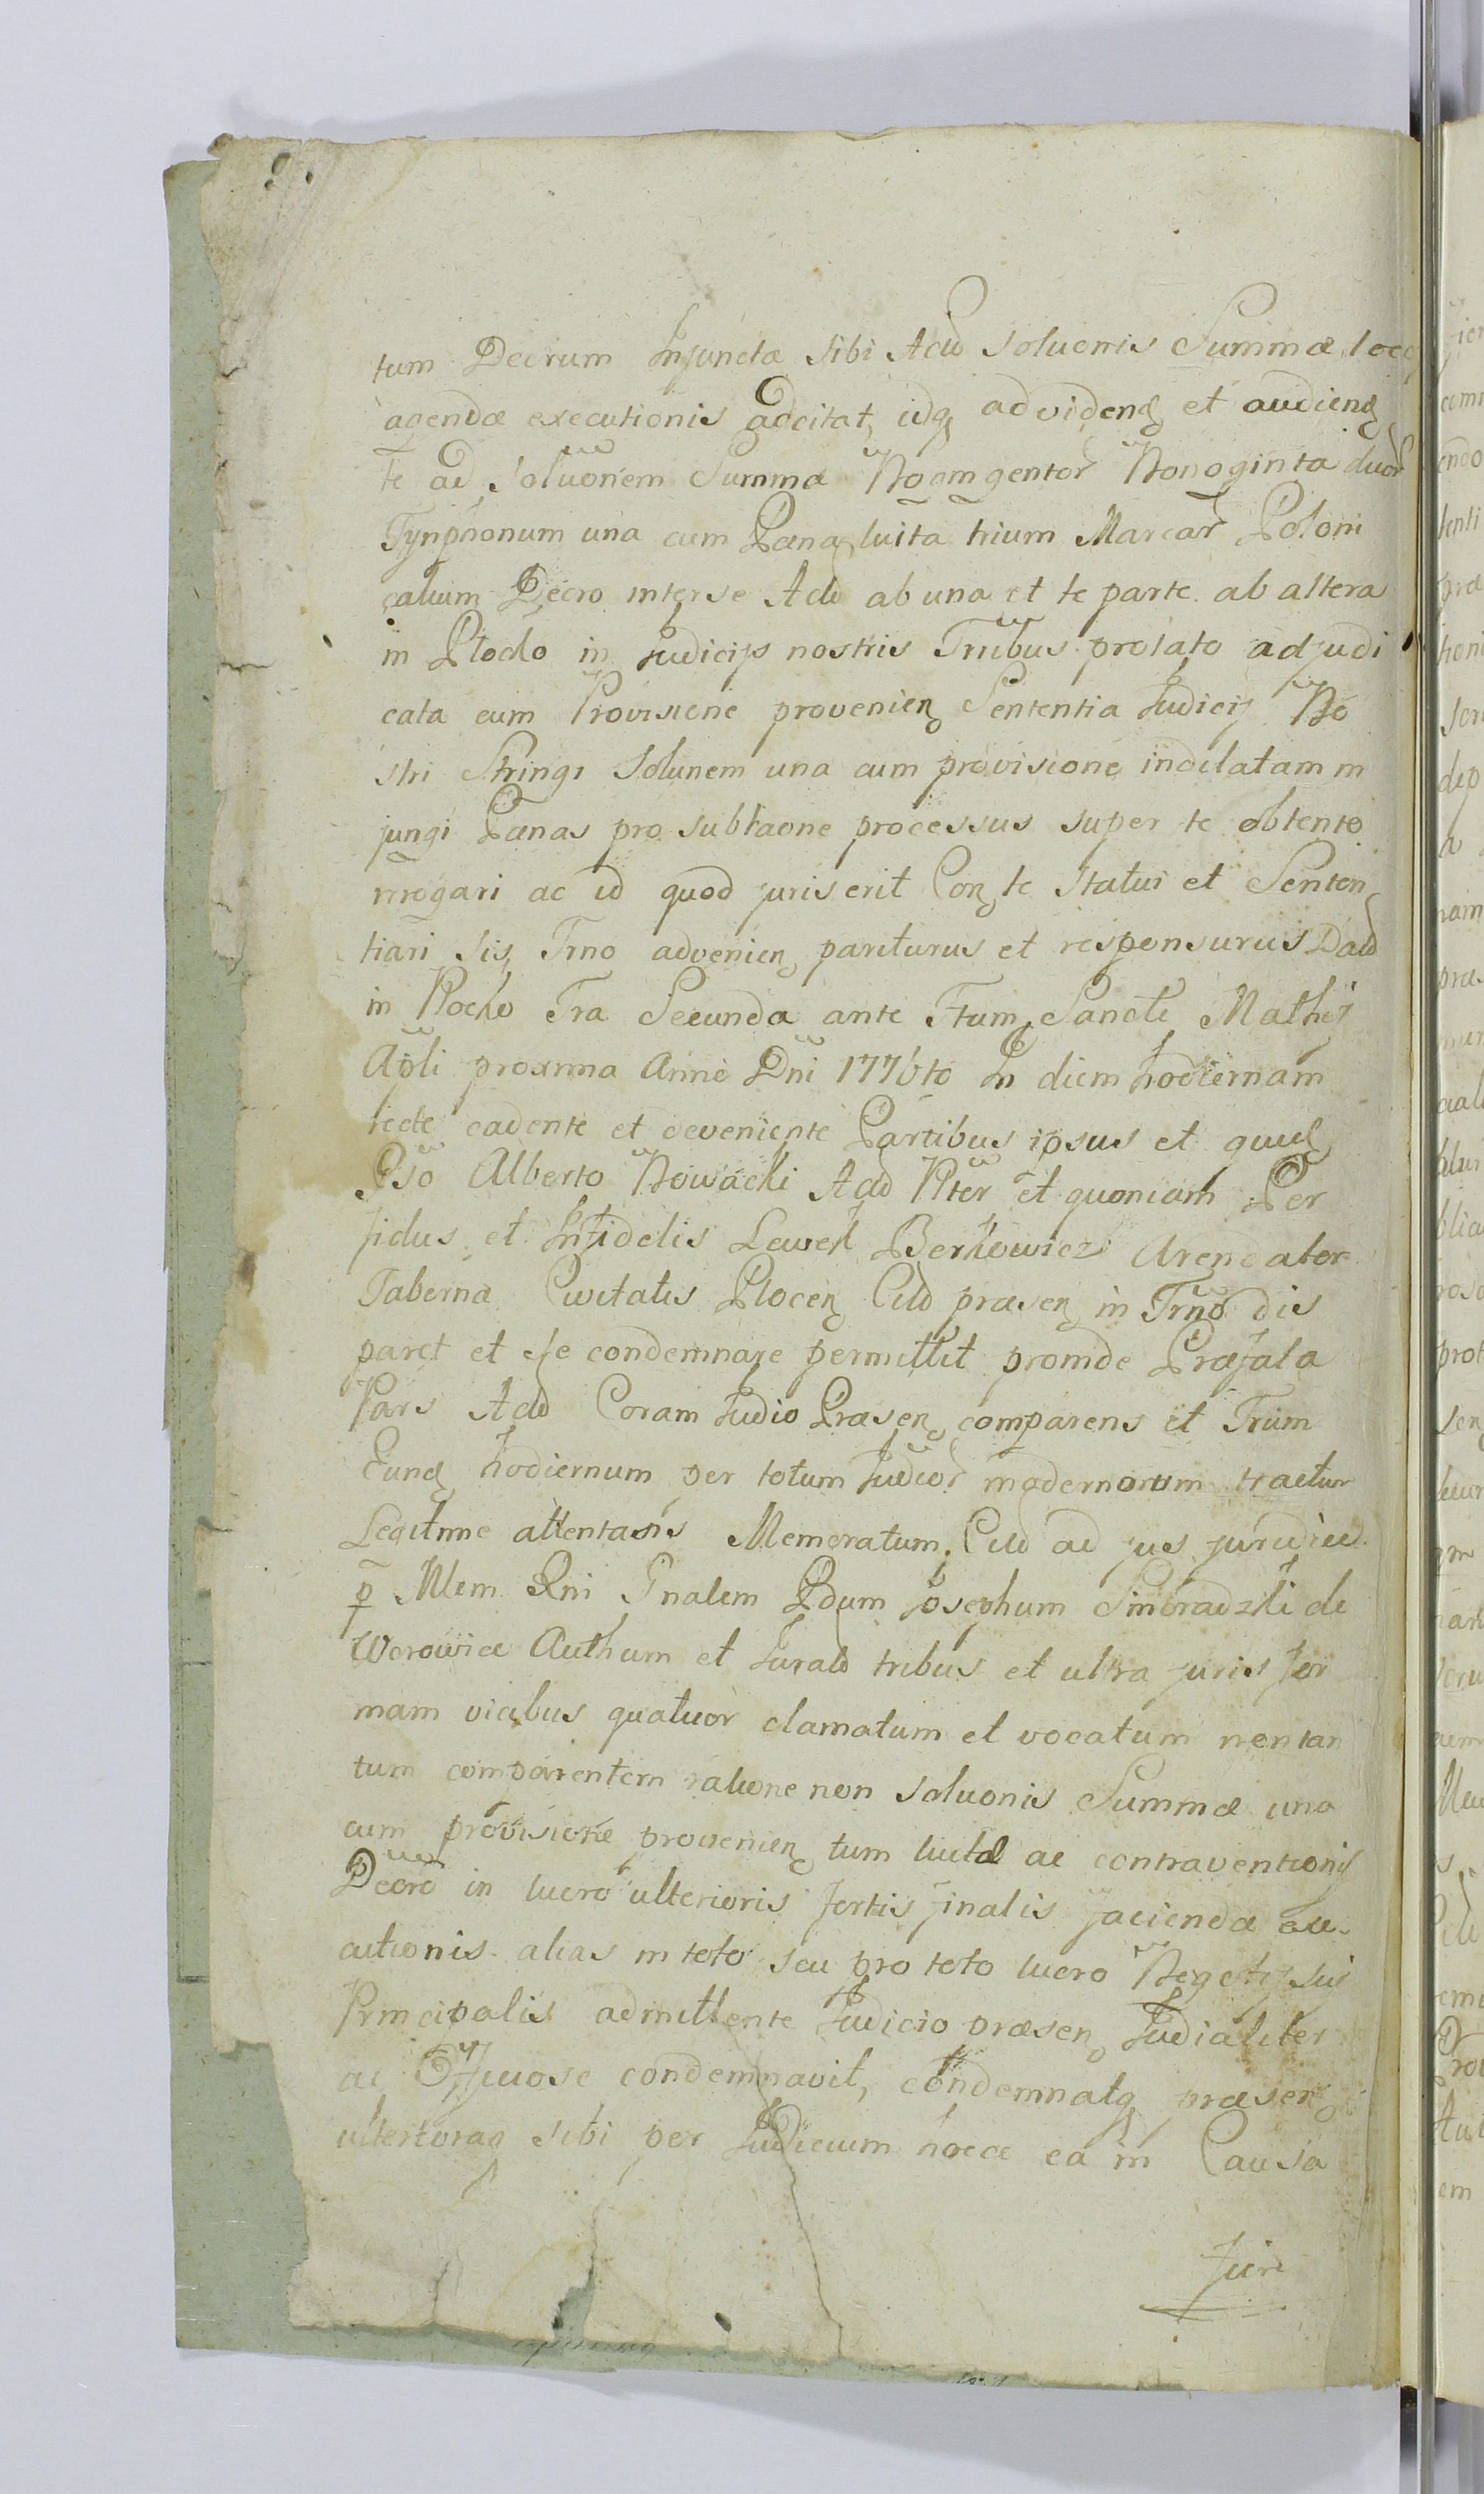 tum Decrum Injuncta sibi Actũ Soluonis Summæ loco
agendæ executionis adcitat, idq adviden et audien
te ad Soluonem Summæ Noningentor Nonoginta duor
Tynphonum una cum Pæna luita trium Marcar Poloni
calium Decro inter se Actũ ab una et te parte ab altera
in Plocko in Judicijs nostris Tribus prolato adjudi
cata cum Provisione provenien Sententia Judicij No
stri Stringi Solunem una cum provisione indilatam in
jungi Pænas pro subtraone processus super te obtento
irrogari ac id quod juris erit Con te Statui et Senten
tiari sis, Trno advenien pariturus et responsurus Datũ
in Plocko Fra Secunda ante Ftum Sancti Mathej
Apli proxima Anno Dni 1776to In diem hodiernam
recte cadente et deveniente Partibus ipsus et quid
Gso Alberto Nowacki Actũ Pter et quoniam Per
fidus et Infidelis Lewek Berkowicz Arendator
Taberna Civitatis Plocen Citũ præsen in Trno dis
paret et se condemnare permittit proinde Præfata
Pars Actũ Coram Judio Præsen comparens et Trum
Eund hodiernum per totum Judior modernorum tractum
Legitime attentans Memoratum Citũ ad jus juridice
p Mlem Rni Gnalem Pdum Josephum Sinoradzki de
Worowice Authum et Juratũ tribus et ultra juris for
mam vicibus quatuor clamatum et vocatum non tan
tum comparentem ratione non Soluonis Summæ una
cum provisione provenien tum luitæ ac contraventionis
Decro in lucro ulterioris fortis finalis faciendæ exe
cutionis alias in toto seu pro toto lucro Negotij sui
Principalis admittente Judicio præsen Judialiter
ac Officiose condemnavit, condemnatq præsen
ulterioraq sibi per Judicium hocce ea in Causa
fieri